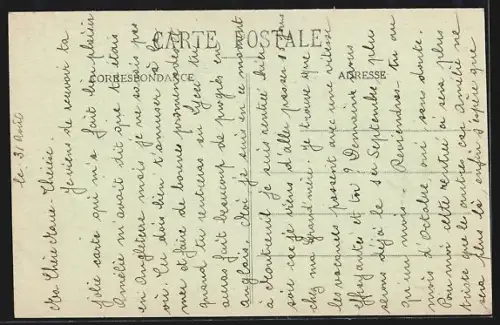 CARTE POSTALE
CORRESPONDANCE
ADRESSE
le 31 Août
Ma Chère Marie-Thérèse
Je viens de recevoir ta
jolie carte qui m'a fait bien plaisir
Amélie m'avait dit que tu étais
en Angleterre mais je ne savais pas
où. Tu dois bien t'amuser à la
mer et faire de bonnes promenades
quand tu rentreras en Lycée tu
auras fait beaucoup de progrès en
anglais. Moi je suis en ce moment
à Montreuil je suis rentrée hier
soir car je viens d'aller passer 8 jours
chez ma Grand'mère. Je trouve que
les vacances passent avec une vitesse
effrayantes et toi? Demain nous
serons déjà le 1er Septembre plus
qu'un mois. Reviendras-tu au
mois d'Octobre, oui sans doute.
Pour moi cette rentrée ci sera plus
triste que les autres car Amélie ne
sera plus là enfin j'espère que